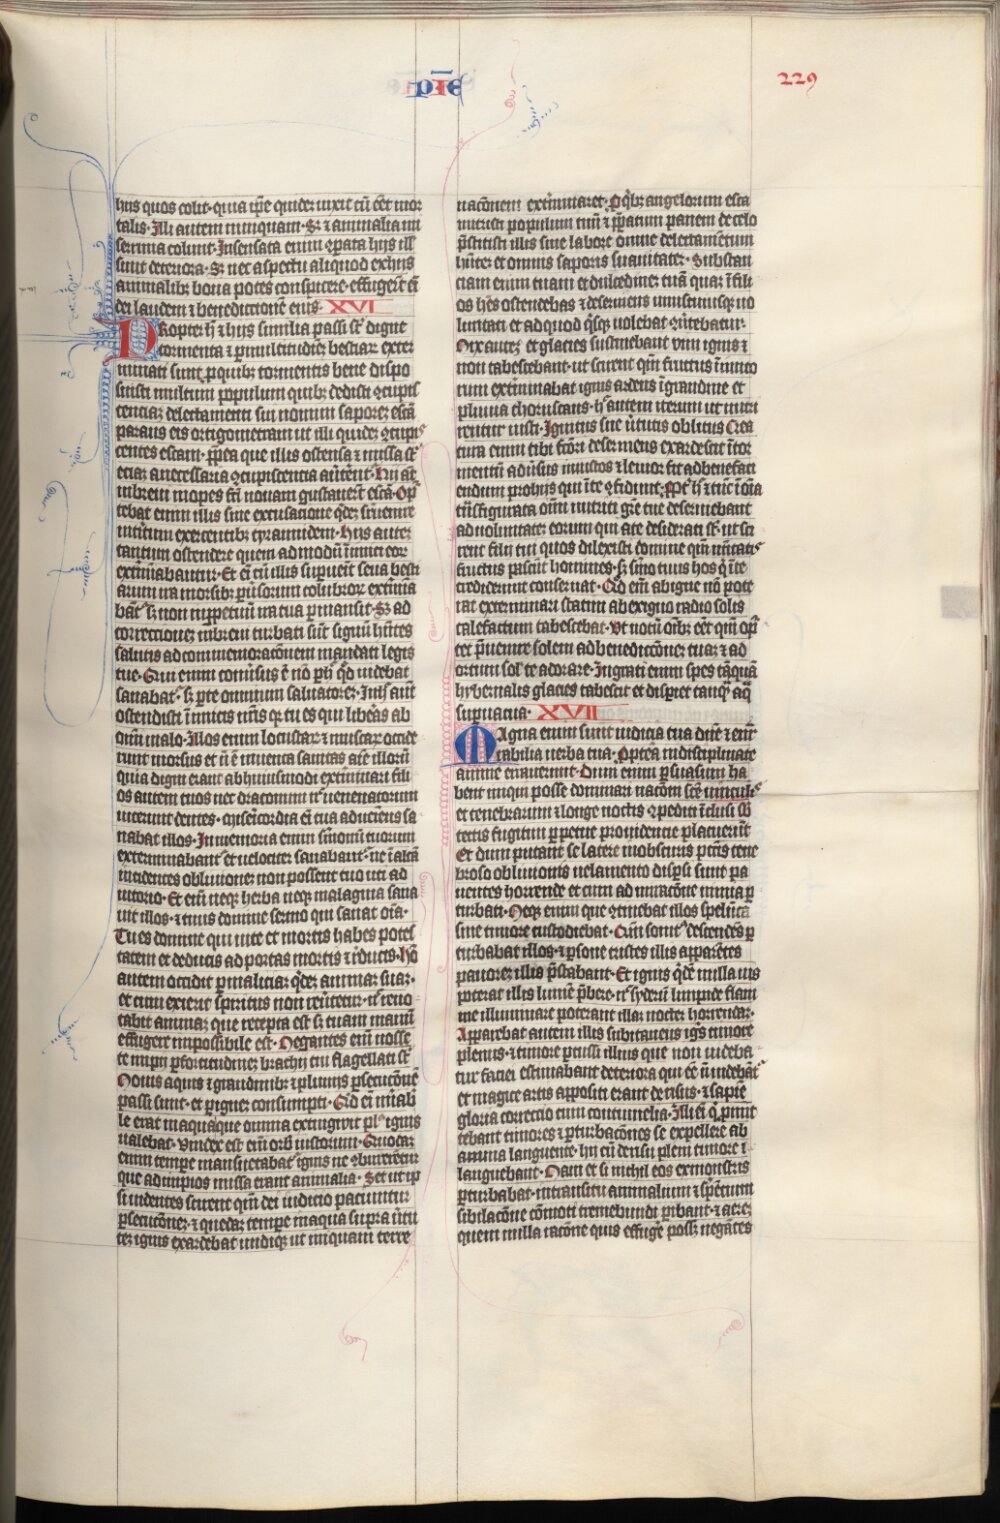 pīe
229
hijs quos colit· quia ipse quidez uixit cū eēt mor
talis· Illi autem nunquam· Sȝ ⁊ animalia mi
serrima colunt· Insensata enim cparata hijs ill
sunt deteriora· Sȝ nec aspectu aliquod ex hijs
animalibȝ bona potes conspicere· effugerūt eī
dei laudem ⁊ benedictionē eius· XVI
Propter h ⁊ hijs similia passi st digne
tormenta ⁊ p multitudinēȝ bestiaꝝ exter
minati sunt· p quibȝ tormentis bene dispo
suisti multum populum quibȝ dedisti ɔcupis
centiaȝ delectamenti sui nouum saporeȝ escā
parans eis ortigometram ut illi quideȝ ɔcupis
centes escam· ppea que illis ostensa ⁊ missa st
eciaȝ a necessaria ɔcupiscentia auterēt· Hij aūt
in breui inopes fti nouam gustauerūt escā· Opr
tebat enim illis sine excusacione qdeȝ suenire
interitum exercentibȝ tyrannidem· Hijs auteȝ
tantum ostendere quem ad modū inimici eoꝝ
extminabantur· Et ei cū illis supuenit seua besti
arum ira morsibȝ puersorum colubroꝝ extmina
bāt· sȝ non inppetuū ira tua pmansit· Sȝ ad
correctionēȝ in breui turbati sūt signū hntes
salutis ad commemoracōnem mandati legis
tue· Qui enim conuersus ē nō p h qd uidebat
sanabat· sȝ p te omnium saluatoreȝ· In hijs aūt
ostendisti inimicis nris qr tu es qui liberas ab
omi malo· Illos enim locustaꝝ ⁊ muscaꝝ occide
runt morsus et n ē inuenta sanitas aīe illorū
quia digni erant ab huiusmodi extminari fili
os autem tuos nec draconum uenenatorum
uicerunt dentes· Misericordia ei tua adueniens sa
nabat illos· In memoria enim sermonū tuorum
exterminabant et uelociter sanabant· ne ī altā
incidentes obliuioneȝ non possent tuo uti ad
iutorio· Et enī neqȝ herba neqȝ malagma sana
uit illos· ⁊ tuus domine sermo qui sanat oīa·
Tu es domine qui uite et mortis habes potes
tatem et deducis ad portas mortis ⁊ reducis· Ho
autem occidit p maliciaȝ qdeȝ animaȝ suaȝ·
et cum exierit spiritus non reūtetur· nec reuo
cabit animaȝ que recepta est sȝ tuam manū
effugere impossibile est· Negantes enī nosse
te impij p fortitudineȝ brachij tui flagellati st
Nouis aquis ⁊ grandinibȝ ⁊ pluuijs psecucōnē
passi sunt· et p igneȝ consumpti· Qd ei mirab
le erat in aqua que omnia extingwit plus ignis
ualebat· vindex est enī orbis iustorum· Quodaȝ
enim tempe mansuetabat ignis ne ɔburerētur
que ad impios missa erant animalia· Set ut ip
si uidentes scirent qm dei iudicio patiuntur
psecucōneȝ· ⁊ quodaȝ tempe in aqua supra uirtu
teȝ ignis exardebat undiqȝ ut iniquam terre
nacōnem exterminaret· Pro qbȝ angelorum esca
nutristi populum tuū ⁊ paratum panem de celo
pstitisti illis sine labore omne delectamētum
hūteȝ et omnis saporis suauitateȝ· Substan
ciam enim tuam et dulcedineȝ tuā quaȝ ī fili
os hēs ostendebas ⁊ deseruiens uniuscuiusqȝ uo
luntati et ad quod qsqȝ uolebat ɔūtebatur·
Nix auteȝ et glacies sustinebant vim ignis ⁊
non tabescebant· ut scirent qm fructus inimico
rum extminabat ignis ardens ī grandine et
pluuia choruscans· h autem iterum ut nutri
rentur iusti· Ignitus sue uirtutis oblitus Crea
tura enim tibi fcori deseruiens exardescit ī tor
mentū aduersus iniustos ⁊ leuior fit ad benefaci
endum pro hijs qui ī te ɔfidunt· Ppt h ⁊ tūc ī oīa
transfigurata omi nutrici gre tue deseruiebant
ad uoluntateȝ eorum qui a te desiderati st· ut sci
rent filij tui quos dilexisti domine qm n natiuitatis
fructus pascunt homines· sȝ smo tuus hos q ī te
crediderint conseruat· Qd enī ab igne nō pote
rat exterminari statim ab exiguo radio solis
calefactum tabescebat· Vt notū omibȝ eēt qm opr
tet puenire solem ad benedictōneȝ tuaȝ ⁊ ad
ortum sol te adorare· Ingrati enim spes tāquā
hybernalis glacies tabescet et dispiet tanqȝ aqua
supuacua· XVII
Magna enim sunt iudicia tua dne ⁊ enar
rabilia uerba tua· Propterea indisciplinate
anime errauerunt· Dum enim p suasum ha
bent iniqui posse dominari nacōni scē uinculis
et tenebrarum ⁊ longe noctis ɔpediti ī clusi sub
tectis fugitiui ppetue prouidencie placuerūt
Et dum putant se latere in obscuris pctis tene
broso obliuionis uelamento dispsi sunt pa
uentes horrende et cum ad miracōne nimia p
turbati· Neqȝ enim que ɔtinebat illos spelūca
sine timore custodiebat· Qm sonit descendēs p
turbabat illos· ⁊ psone tristes illis apparētes
pauoreȝ illis pstabant· Et ignis qde nulla uis
poterat illis lumē pbere· nec syderū limpide flam
me illuminare poterant illaȝ nocteȝ horrendaȝ·
Apparebat autem illis subitaneus igis timore
plenus· ⁊ timore pcussi illius que non uideba
tur faciei estimabant deteriora qui eē n uidebāt
et magice artis appositi erant derisus· ⁊ sapiē
gloria correctio cum contumelia· Illi ei q pmit
tebant timores ⁊ pturbacōnes se expellere ab
anima languente· hij cū derisu pleni timore
languebant· Nam et si nichil eos ex monstris
pturbabat· in transitu animalium ⁊ serpētium
sibilacōne cōmoti tremebundi pibant· ⁊ aereȝ
quem nulla racōne quis effuge possȝ negātes